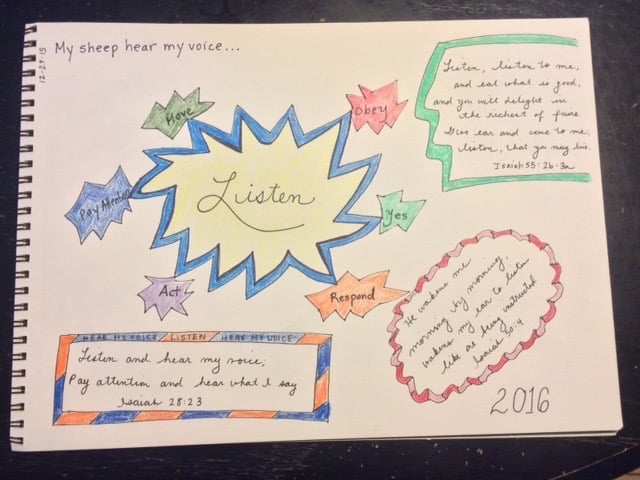 12-29-15
My sheep hear my voice...
Listen, listen to me,
and eat what is good,
and you will delight in
the richest of faire.
Give ear and come to me;
listen, that you may live.
Isaiah 55:2b-3a
Move
Obey
Listen
Pay Attention
Yes
Act
Respond
He wakens me
morning by morning,
wakens my ear to listen
like one being instructed
Isaiah 50:4
HEAR MY VOICE LISTEN HEAR MY VOICE
Listen and hear my voice;
Pay attention and hear what I say
Isaiah 28:23
2016